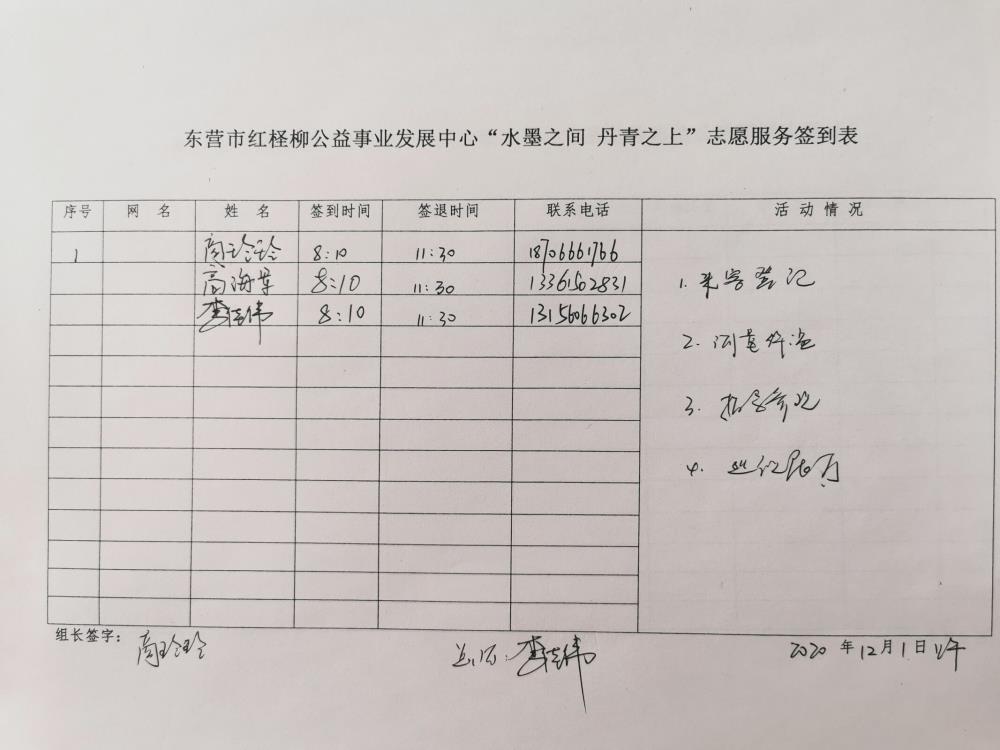 东营市红柽柳公益事业发展中心“水墨之间 丹青之上”志愿服务签到表
序号 网 名 姓 名 签到时间 签退时间 联系电话 活 动 情 况
1 商玲玲 8:10 11:30 18706661766
高海草 8:10 11:30 13361502831
李佳伟 8:10 11:30 13156066302
1. 来客登记
2. 测量体温
3. 指导参观
4.
组长签字: 商玲玲 李佳伟 2020 年 12 月 1 日 上午